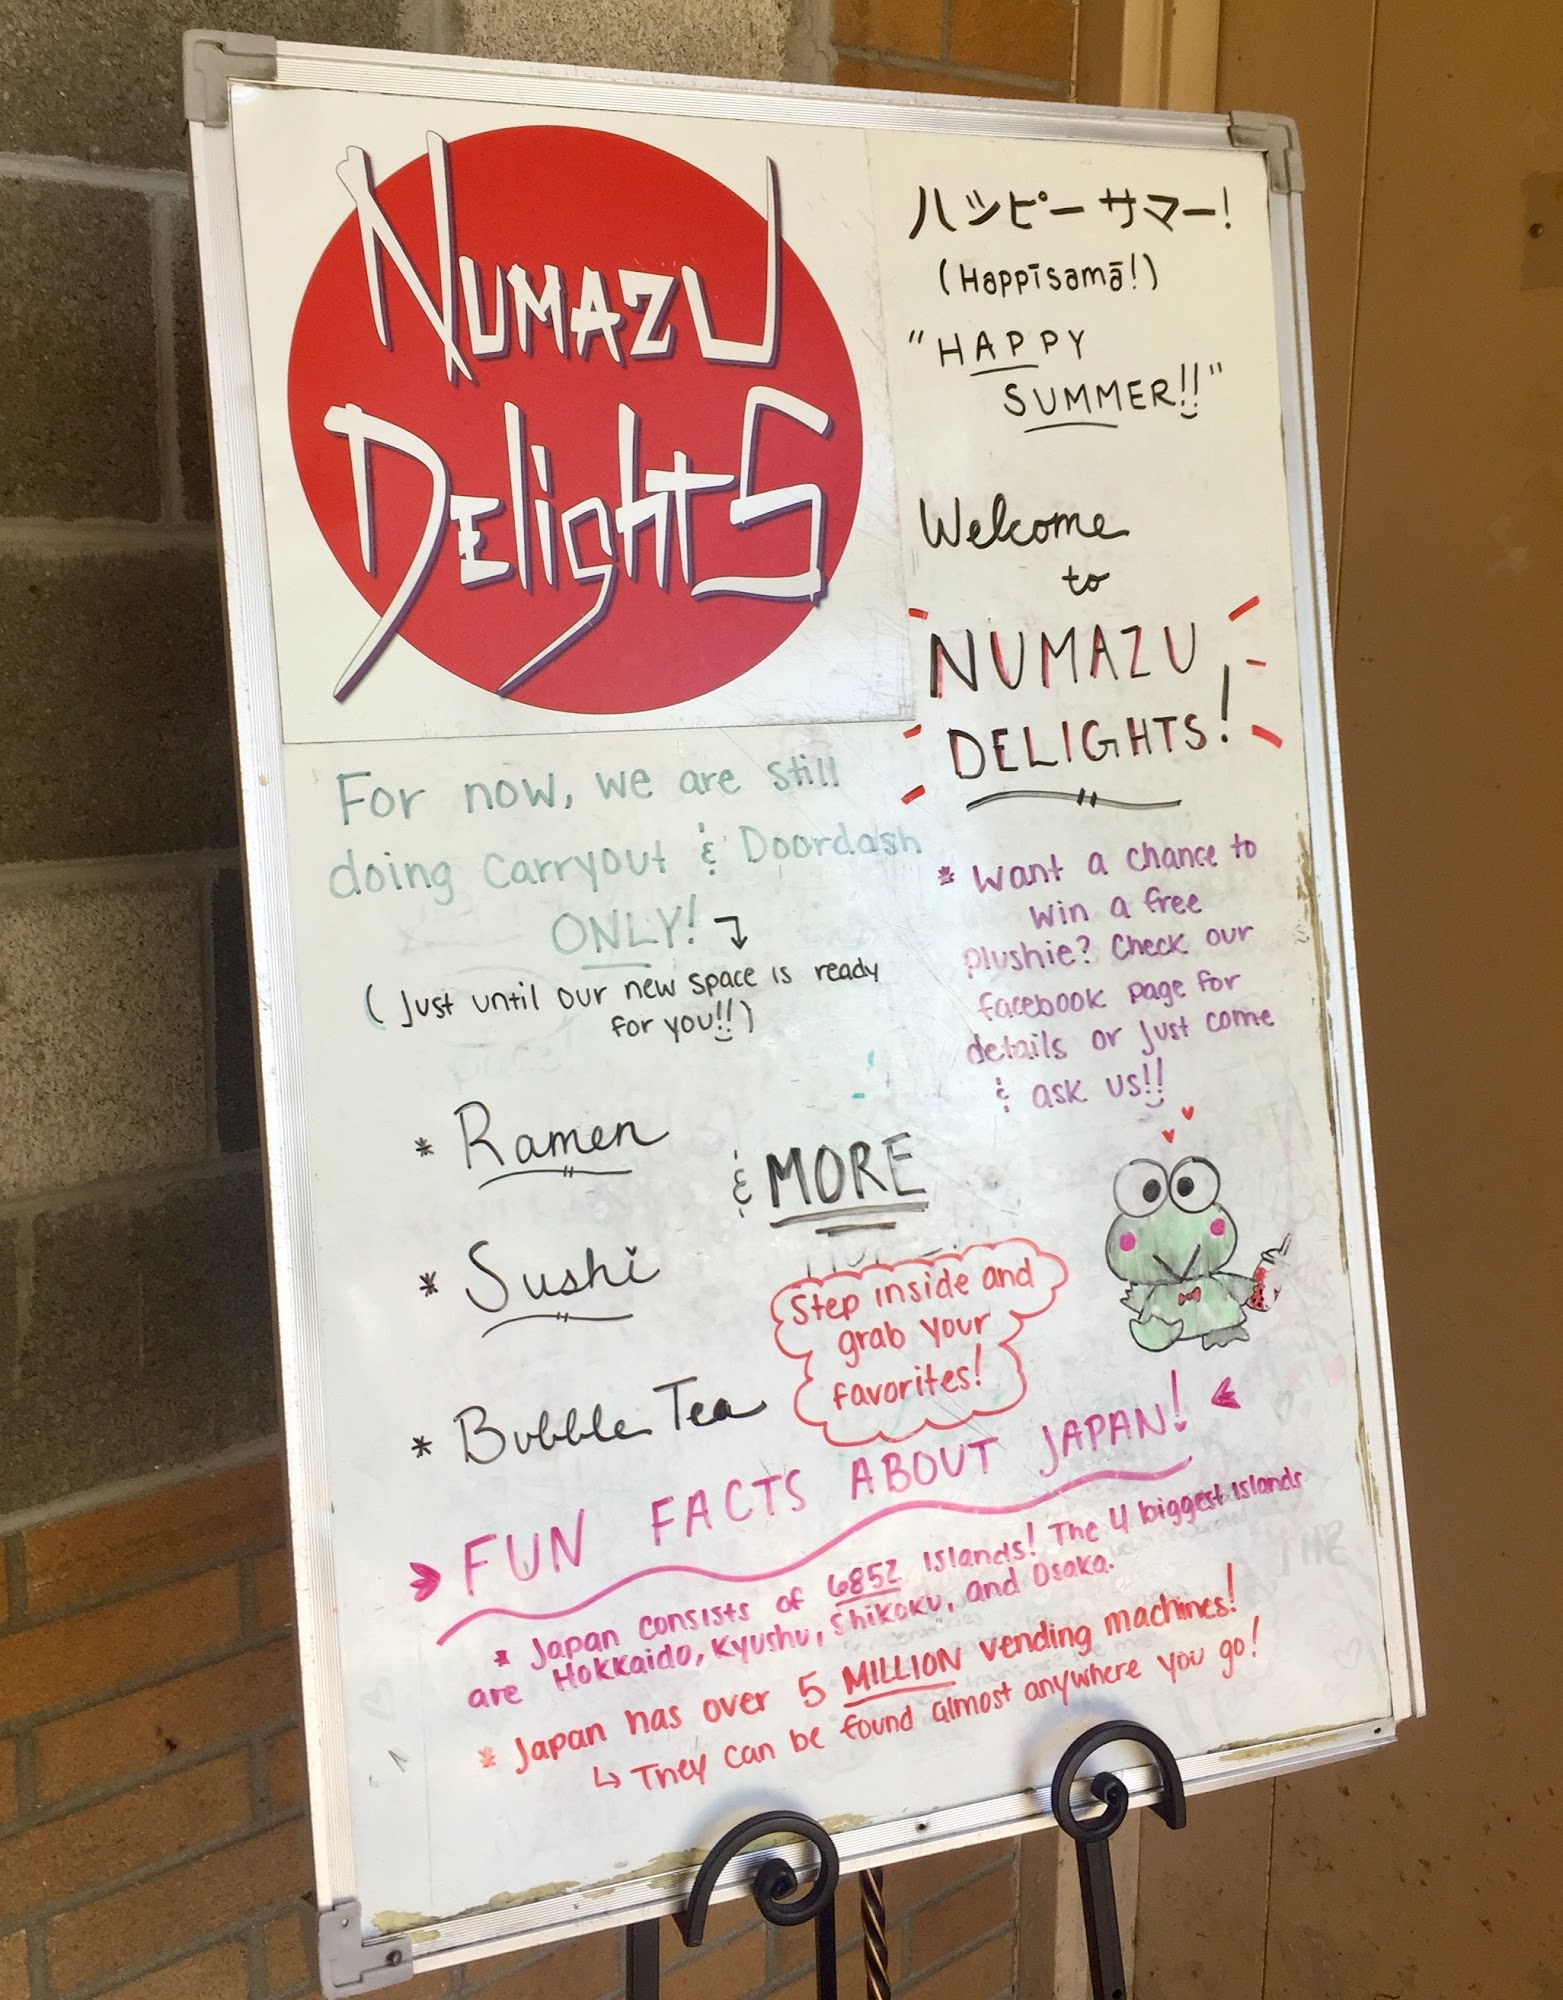 NUMAZU
DELIGHTS
ハッピー サマー!
(Happīsamā!)
"HAPPY
SUMMER!!"
Welcome
to
NUMAZU
DELIGHTS!
For now, we are still
doing carryout & Doordash
ONLY!
(Just until our new space is ready
for you!!)
* Want a chance to
win a free
plushie? Check our
facebook page for
details or just come
& ask us!!
* Ramen
* Sushi
* Bubble Tea
& MORE
Step inside and
grab your
favorites!
FUN FACTS ABOUT JAPAN!
* Japan consists of 6852 islands! The 4 biggest islands
are Hokkaido, Kyushu, Shikoku, and Osaka.
* Japan has over 5 MILLION vending machines!
↳ They can be found almost anywhere you go!